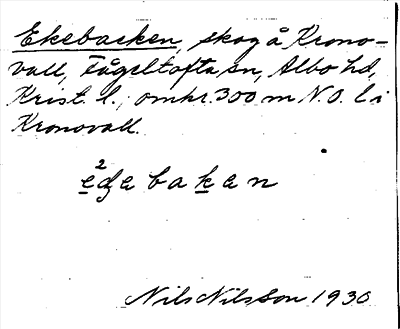 Ekebacken, skog å Krono-
vall, Fågeltofta sn, Albo hd,
Krist. l.; omkr. 300 m N.O. l i
Kronovall.
Nils Nilsson 1930